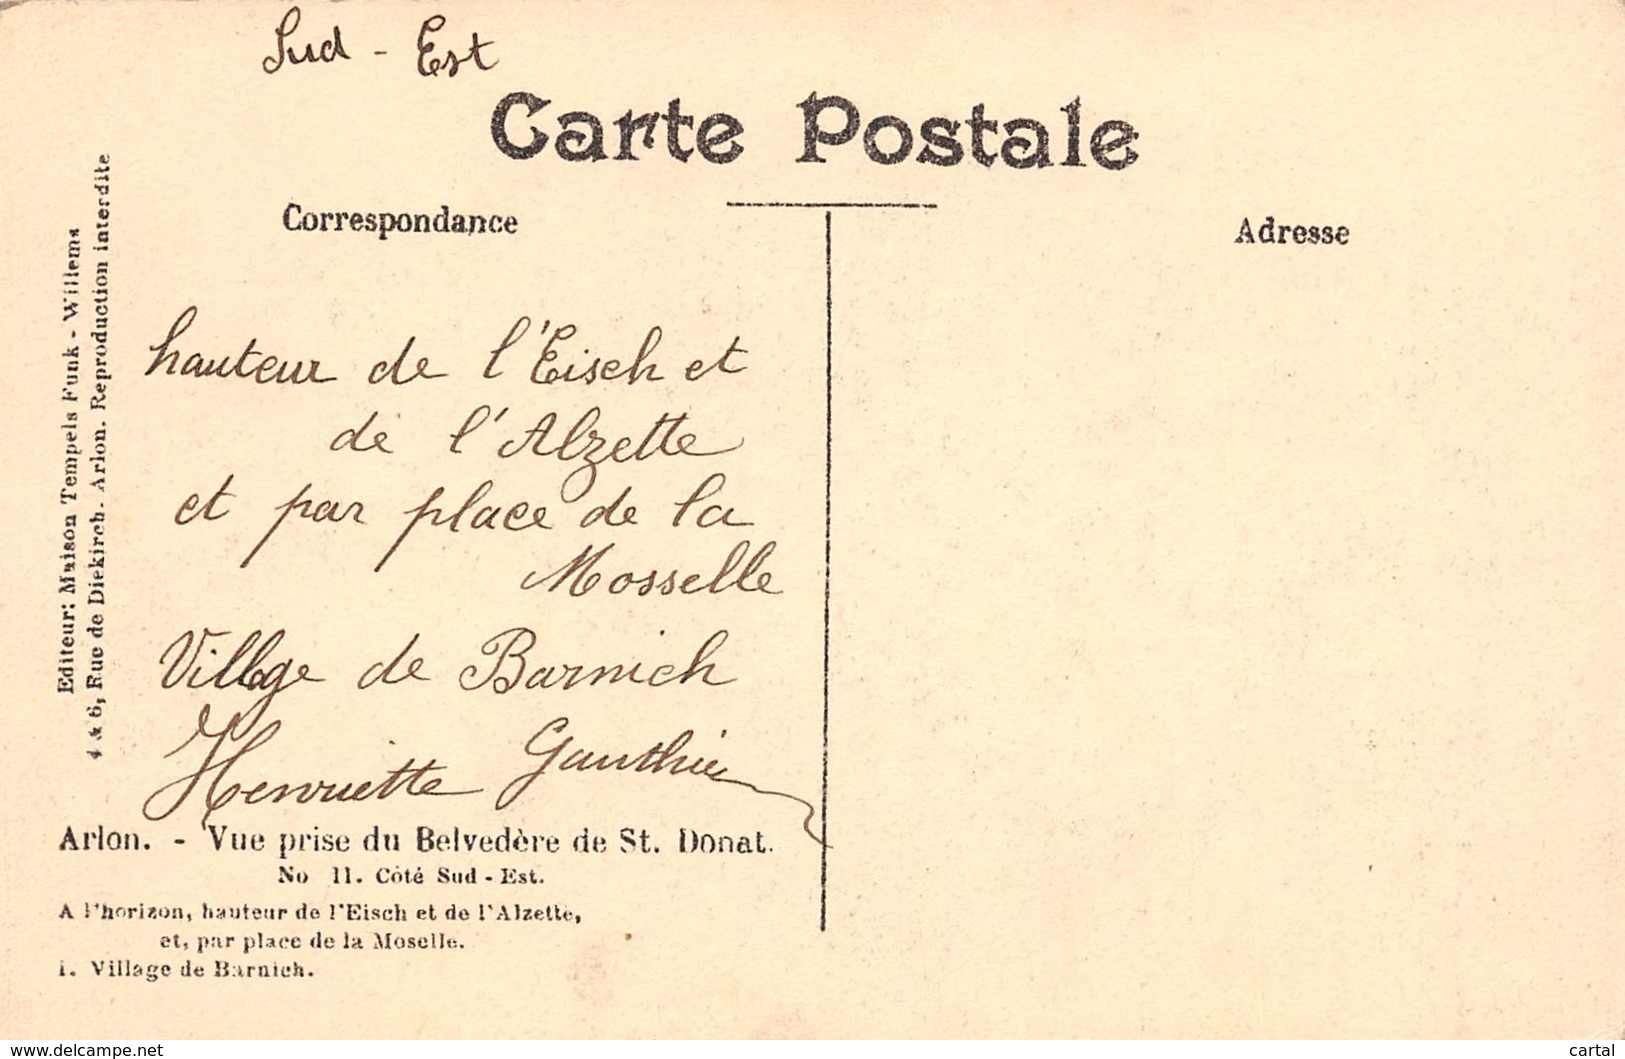 Sud - Est
Carte Postale
Correspondance
Adresse
Editeur: Maison Tempels Funk - Willems
4 & 6, Rue de Diekirch. Arlon. Reproduction interdite
hauteur de l'Eisch et
de l'Alzette
et par place de la
Mosselle
Village de Barnich
Henriette Gauthier
Arlon. - Vue prise du Belvedère de St. Donat.
No 11. Côté Sud - Est.
A l'horizon, hauteur de l'Eisch et de l'Alzette,
et, par place de la Moselle.
1. Village de Barnich.
www.delcampe.net
cartal